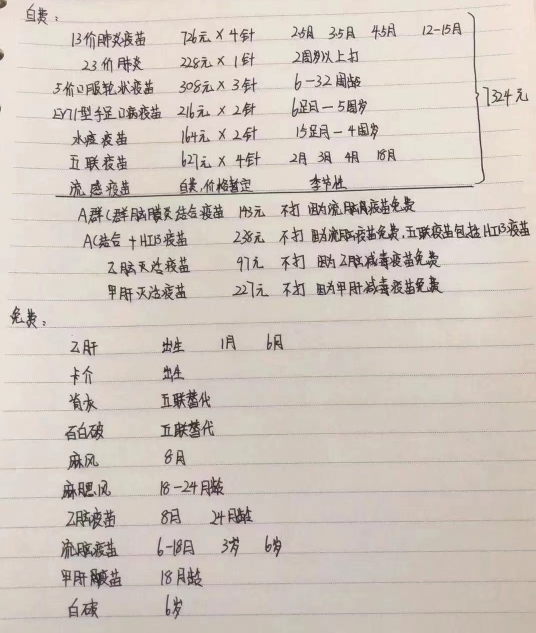 自费:
13价肺炎疫苗 726元×4针 2.5月 3.5月 4.5月 12-15月
23价肺炎 228元×1针 2周岁以上打
5价口服轮状疫苗 308元×3针 6-32周龄
EV71型手足口病疫苗 216元×2针 6足月-5周岁
水痘疫苗 164元×2针 15足月-4周岁
五联疫苗 627元×4针 2月 3月 4月 18月
流感疫苗 自费,价格暂定 季节性
7324元
A群C群脑膜炎结合疫苗 143元 不打 因为流脑疫苗免费
AC结合+HIB疫苗 238元 不打 因为流脑疫苗免费,五联疫苗包括HIB疫苗
乙脑灭活疫苗 97元 不打 因为乙脑减毒疫苗免费
甲肝灭活疫苗 227元 不打 因为甲肝减毒疫苗免费
免费:
乙肝 出生 1月 6月
卡介 出生
脊灰 五联替代
百白破 五联替代
麻风 8月
麻腮风 18-24月龄
乙脑疫苗 8月 24月龄
流脑疫苗 6-18月 3岁 6岁
甲肝疫苗 18月龄
白破 6岁